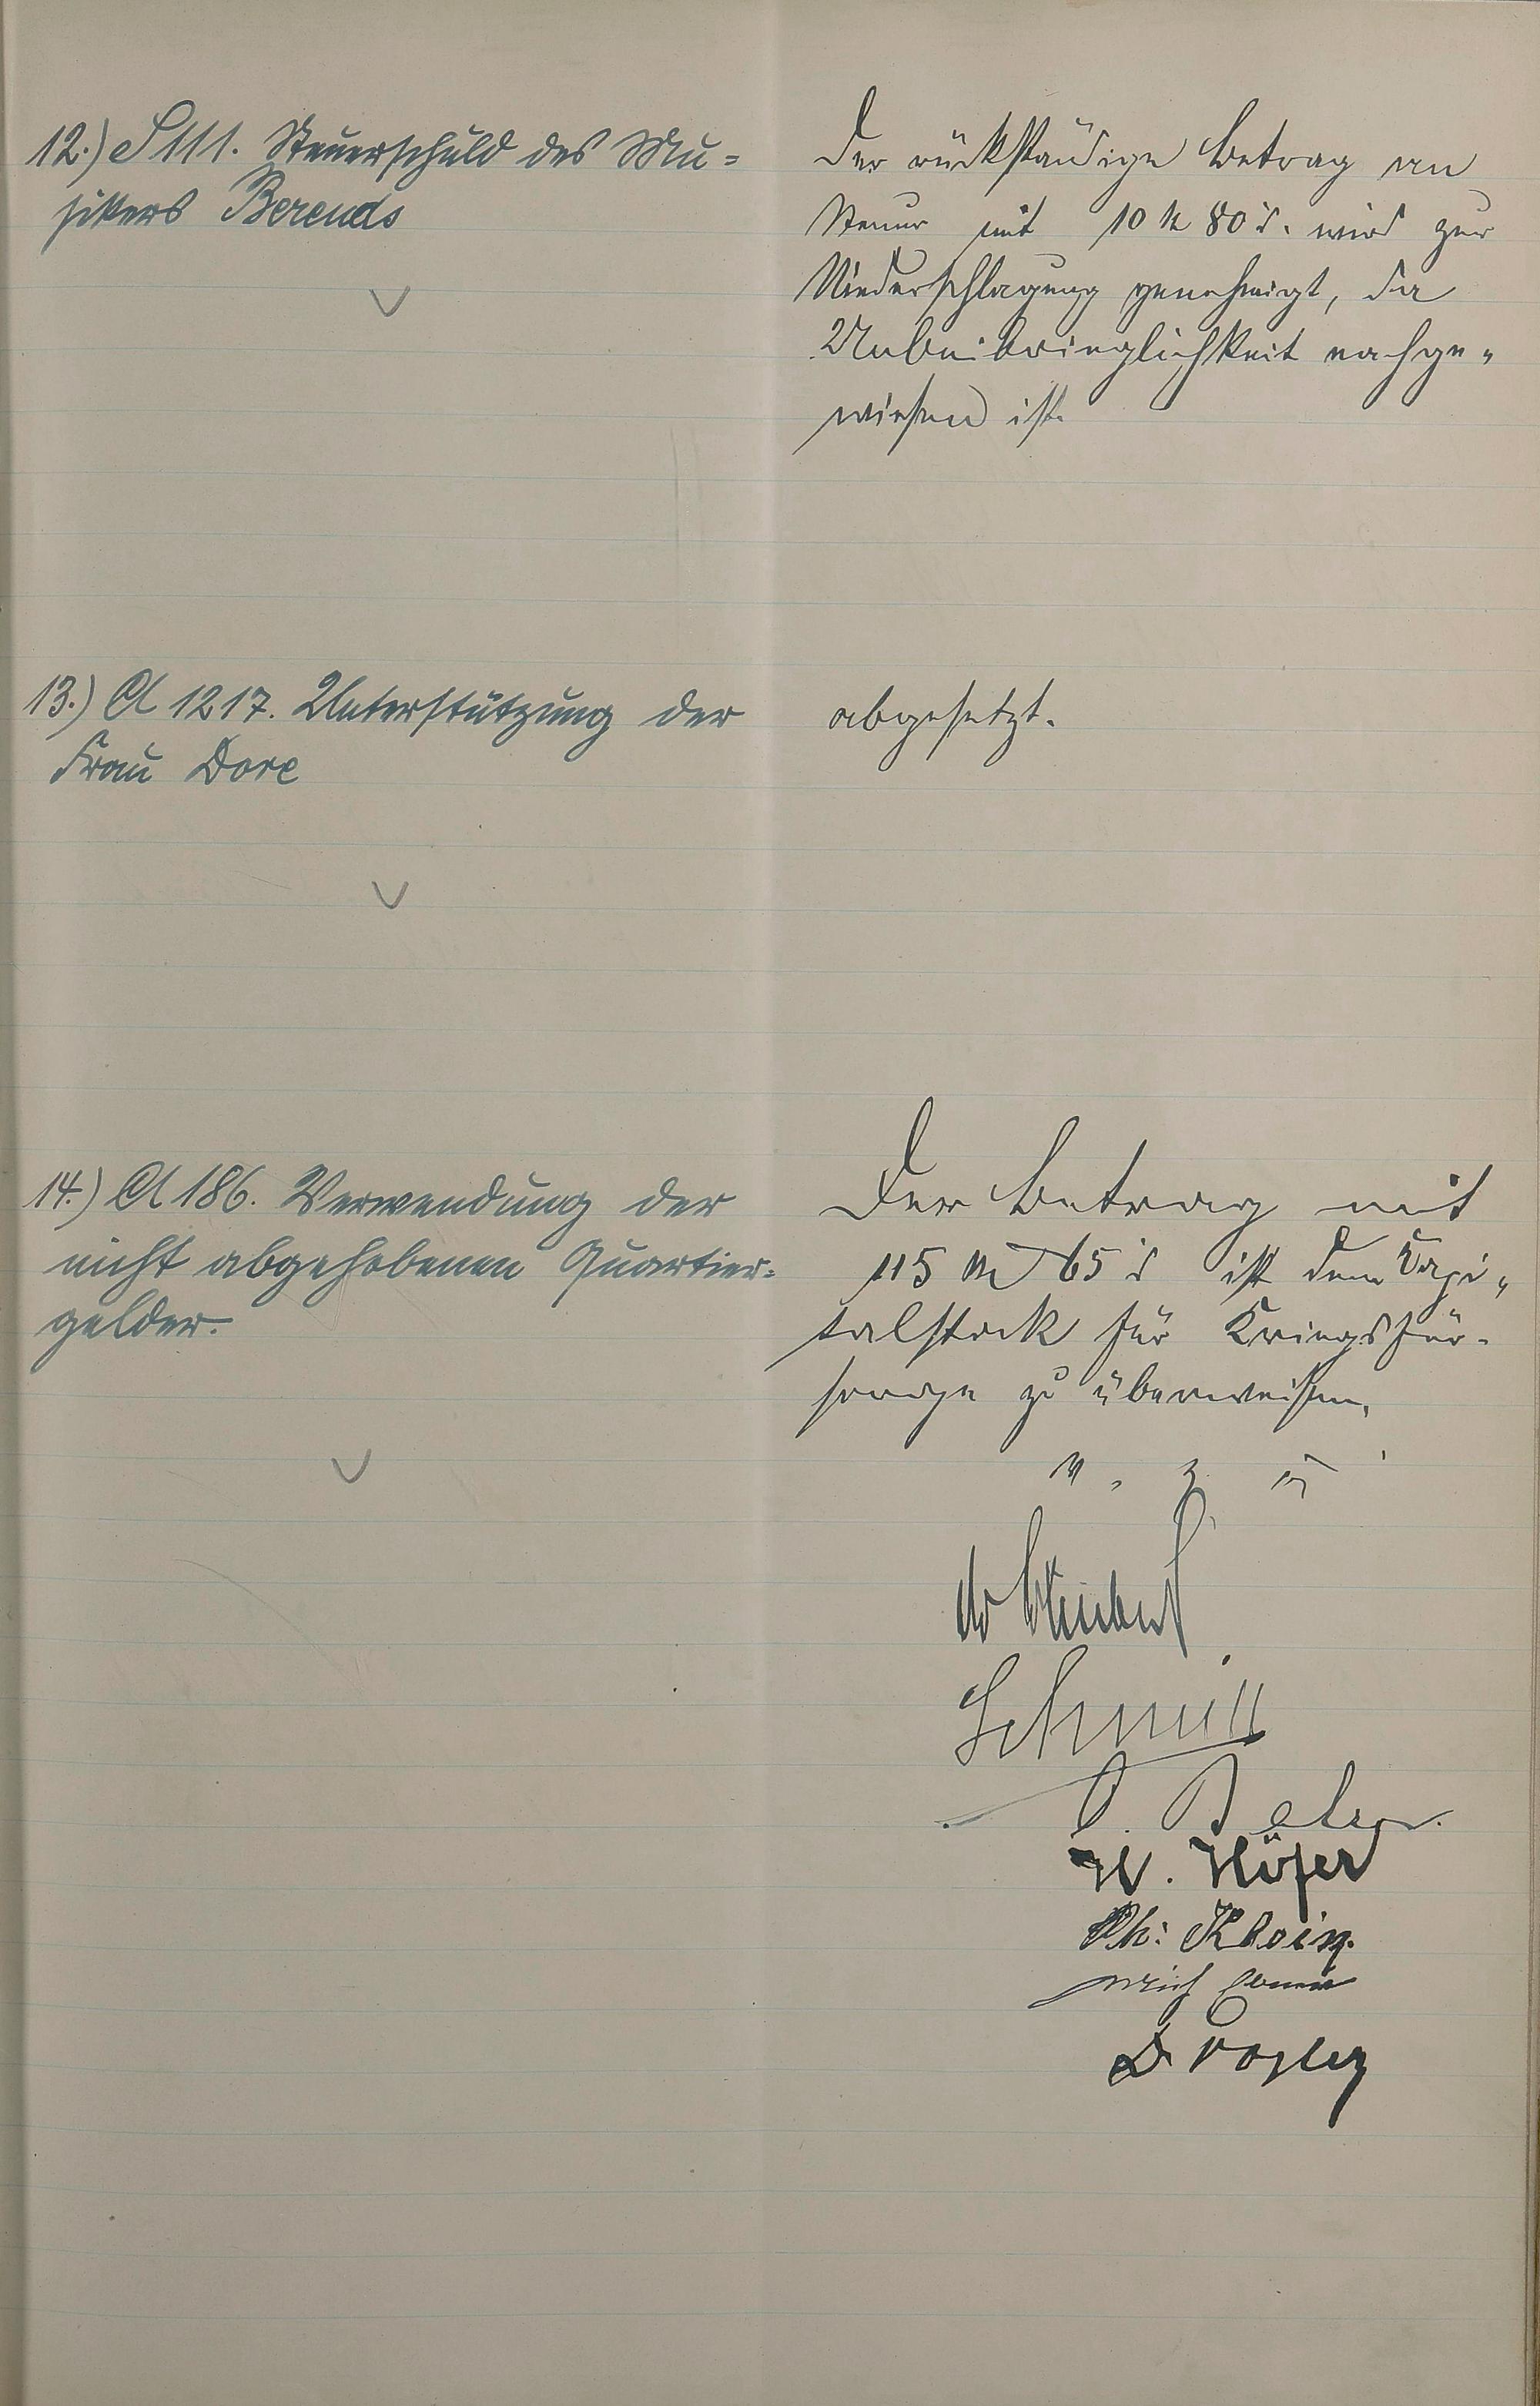 12.) S 111. Steuerschuld des Mu=
sikers Berends
Der rückständige Betrag an
Steuer mit 10 M 80 ₰. wird zur
Niederschlagung genehmigt, da
Unbeibringlichkeit nachge-
wiesen ist.
13.) A 1217. Unterstützung der
Frau Dore
abgesetzt.
14.) A 186. Verwendung der
nicht abgehobenen Quartier=
gelder.
Der Betrag mit
115 M 65 ₰ ist dem Kapi-
talstock für Kriegsfür-
sorge zu überweisen.
Schmitt
H. Höfer
Ph: Klein.
D Vogley